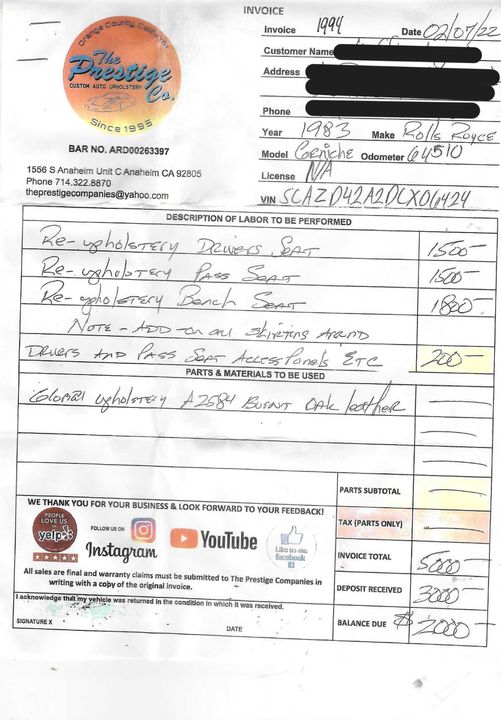 INVOICE
Orange County, California
The
Prestige
CUSTOM AUTO UPHOLSTERY
Co.
Since 1995
BAR NO. ARD00263397
1556 S Anaheim Unit C Anaheim CA 92805
Phone 714.322.8870
theprestigecompanies@yahoo.com
Invoice 1994 Date 02/07/22
Customer Name
Address
Phone
Year 1983 Make Rolls Royce
Model Corniche Odometer 64510
License N/A
VIN SCAZD42A2DCX06424
DESCRIPTION OF LABOR TO BE PERFORMED
Re-upholstery Drivers Seat 1500-
Re-upholstery Pass Seat 1500-
Re-upholstery Bench Seat 1800-
Note - Add-on all skirting Around
Drivers And Pass Seat Access Panels Etc 200-
PARTS & MATERIALS TO BE USED
Global upholstery A2584 Burnt Oak leather
PARTS SUBTOTAL
TAX (PARTS ONLY)
INVOICE TOTAL 5000
DEPOSIT RECEIVED 3000-
BALANCE DUE $2000-
WE THANK YOU FOR YOUR BUSINESS & LOOK FORWARD TO YOUR FEEDBACK!
PEOPLE
LOVE US
ON
yelp
FOLLOW US ON
Instagram
YouTube
Like us on
facebook
All sales are final and warranty claims must be submitted to The Prestige Companies in
writing with a copy of the original invoice.
I acknowledge that my vehicle was returned in the condition in which it was received.
SIGNATURE X DATE